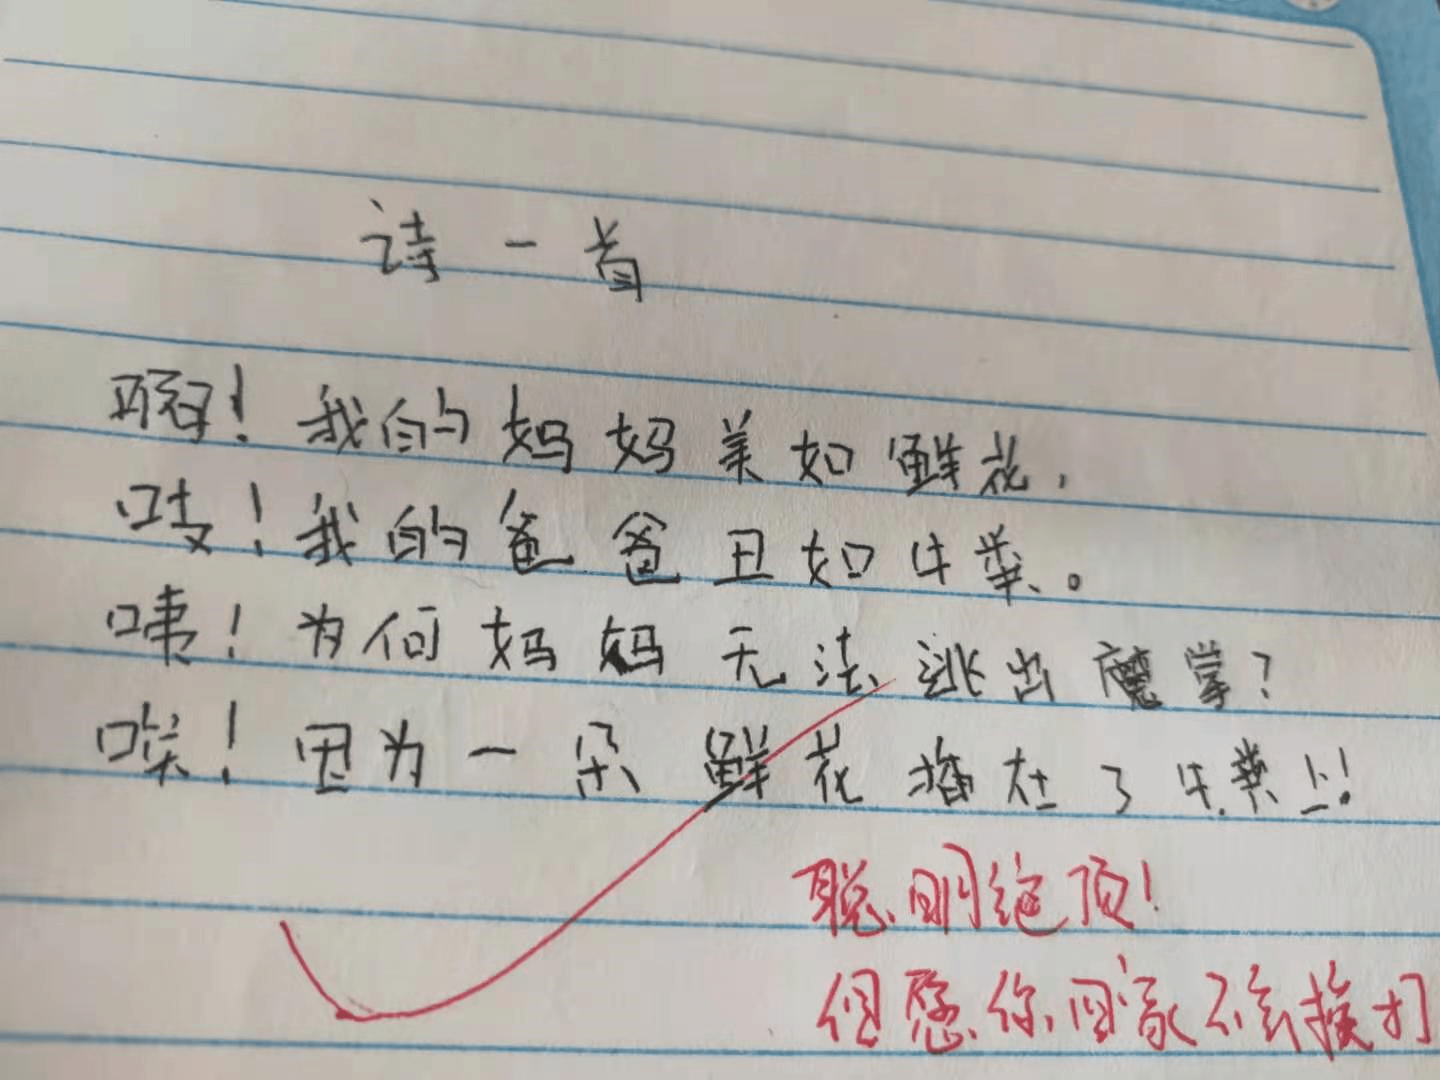 诗一首
啊！我的妈妈美如鲜花，
吱！我的爸爸丑如牛粪。
咦！为何妈妈无法逃出魔掌？
唉！因为一朵鲜花插在了牛粪上！
聪明绝顶！
但愿你回家不会挨打